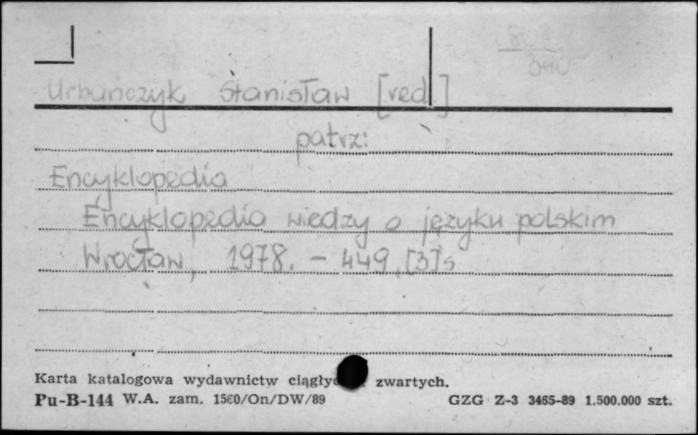 Urbańczyk Stanisław [red]
patrz:
Encyklopedia
Encyklopedia wiedzy o języku polskim
Wrocław, 1978. - 449, [3] s
Karta katalogowa wydawnictw zwartych.
Pu-B-144 W.A. zam. 1560/On/DW/89 GZG Z-3 3465-89 1.500.000 szt.